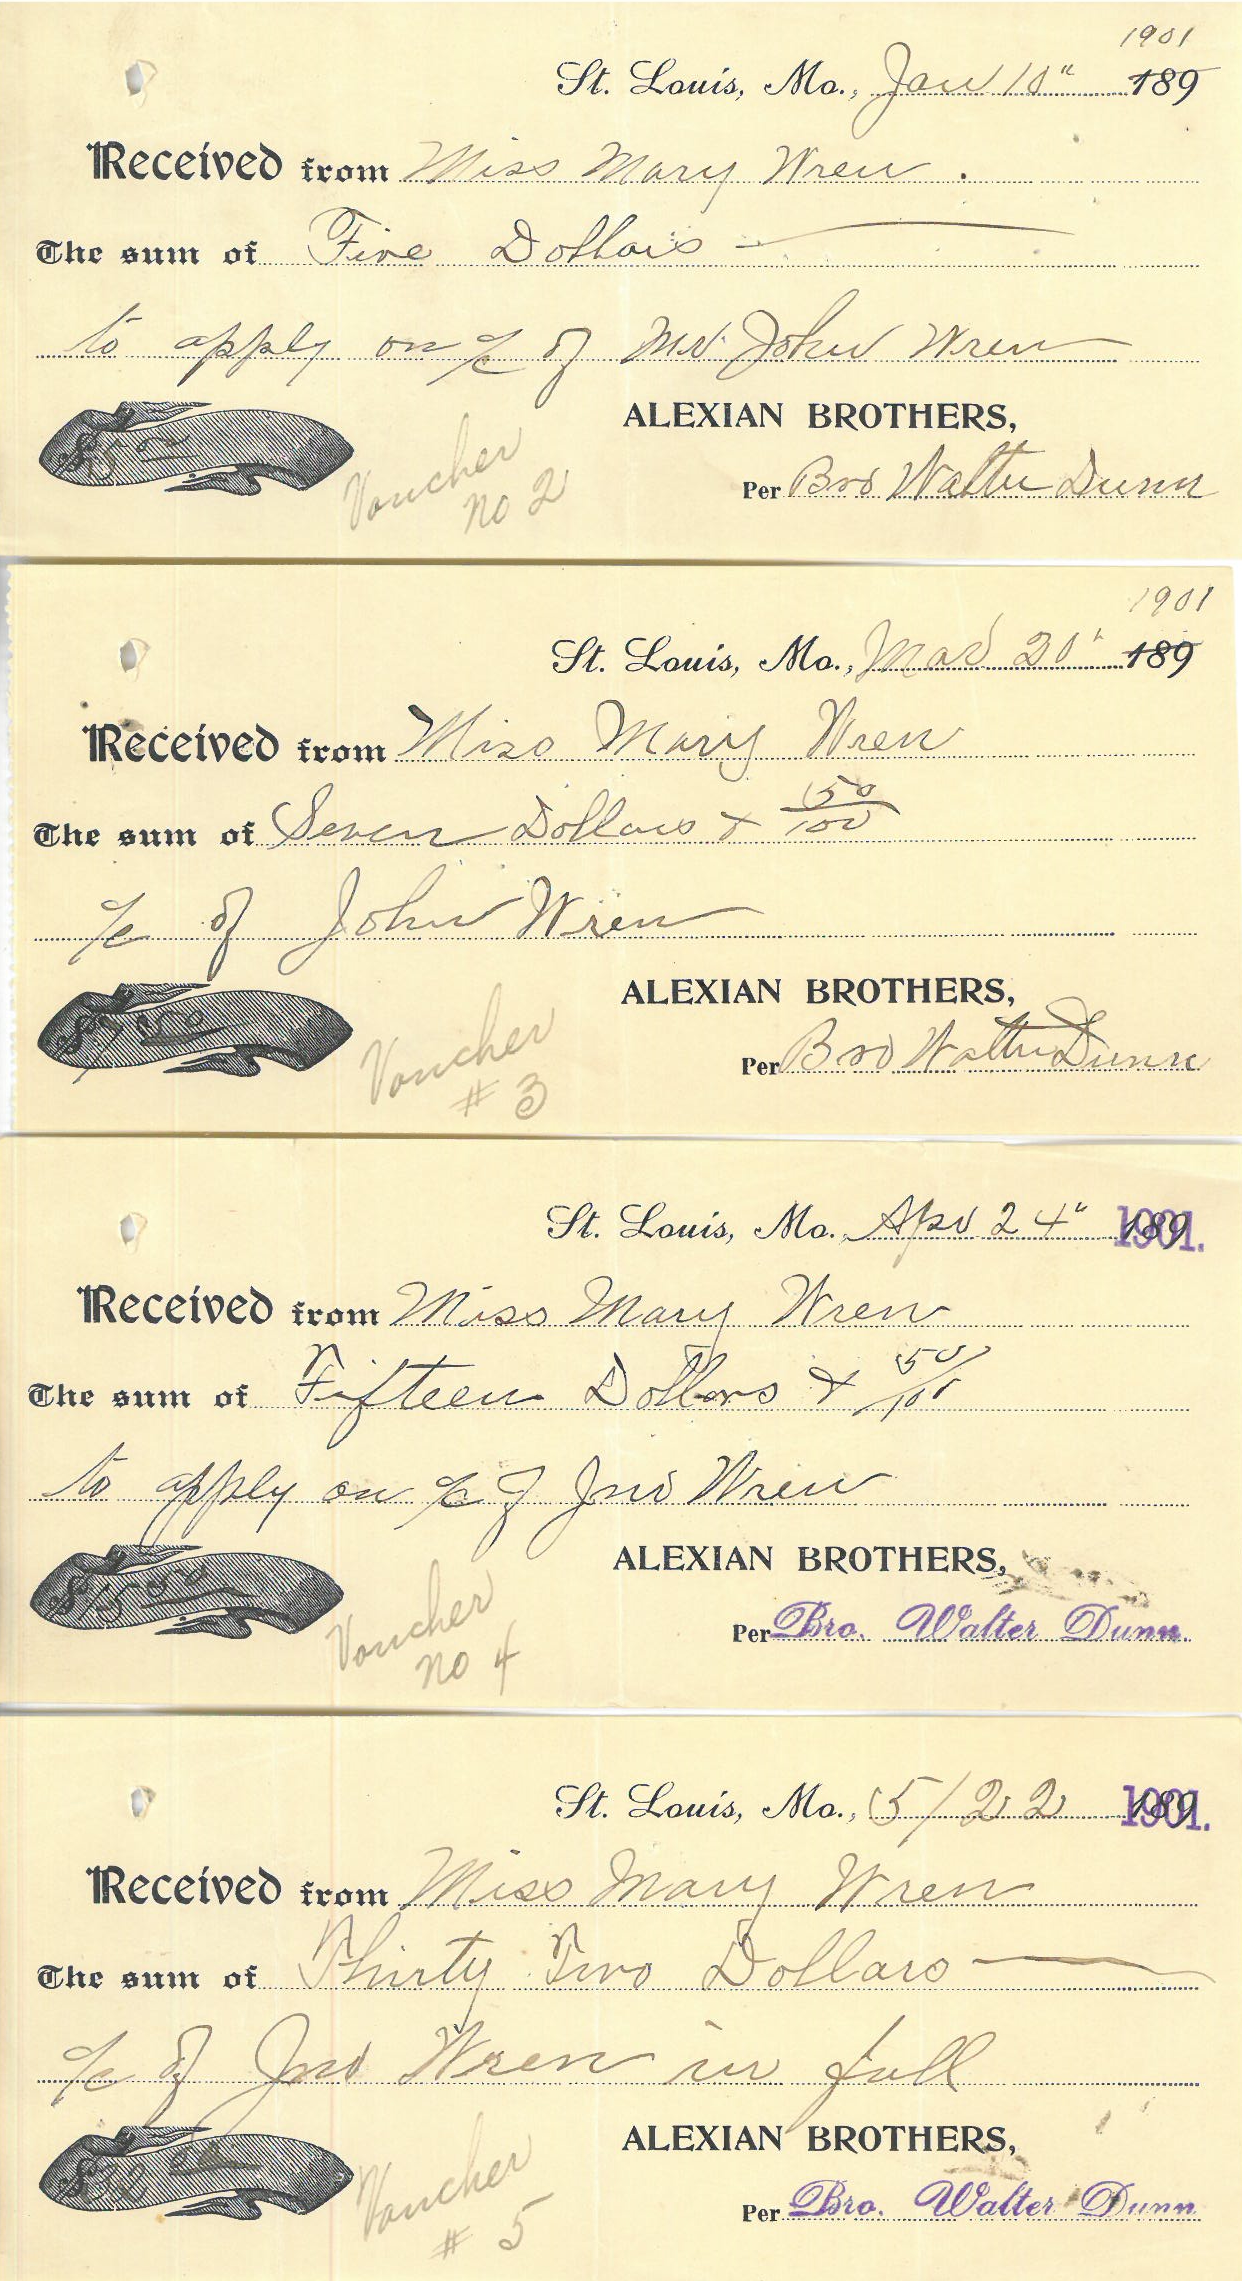 1901
St. Louis, Mo., Jan 10" 189
Received from Miss Mary Wren.
The sum of Five Dollars —
to apply on a/c of Mr. John Wren
ALEXIAN BROTHERS,
$5.00
Voucher
no 2
Per Bro Walter Dunn
1901
St. Louis, Mo., Mar 20" 189
Received from Miss Mary Wren
The sum of Seven Dollars & 50/100
a/c of John Wren
ALEXIAN BROTHERS,
$7.50
Voucher
# 3
Per Bro Walter Dunn
St. Louis, Mo., Apr 24" 189 1901.
Received from Miss Mary Wren
The sum of Fifteen Dollars & 50/100
to apply on a/c of Jno Wren
ALEXIAN BROTHERS,
$15.50
Voucher
no 4
Per Bro. Walter Dunn.
St. Louis, Mo., 5/22 189 1901.
Received from Miss Mary Wren
The sum of Thirty Two Dollars —
a/c of Jno Wren in full
ALEXIAN BROTHERS,
$32.00
Voucher
# 5
Per Bro. Walter Dunn